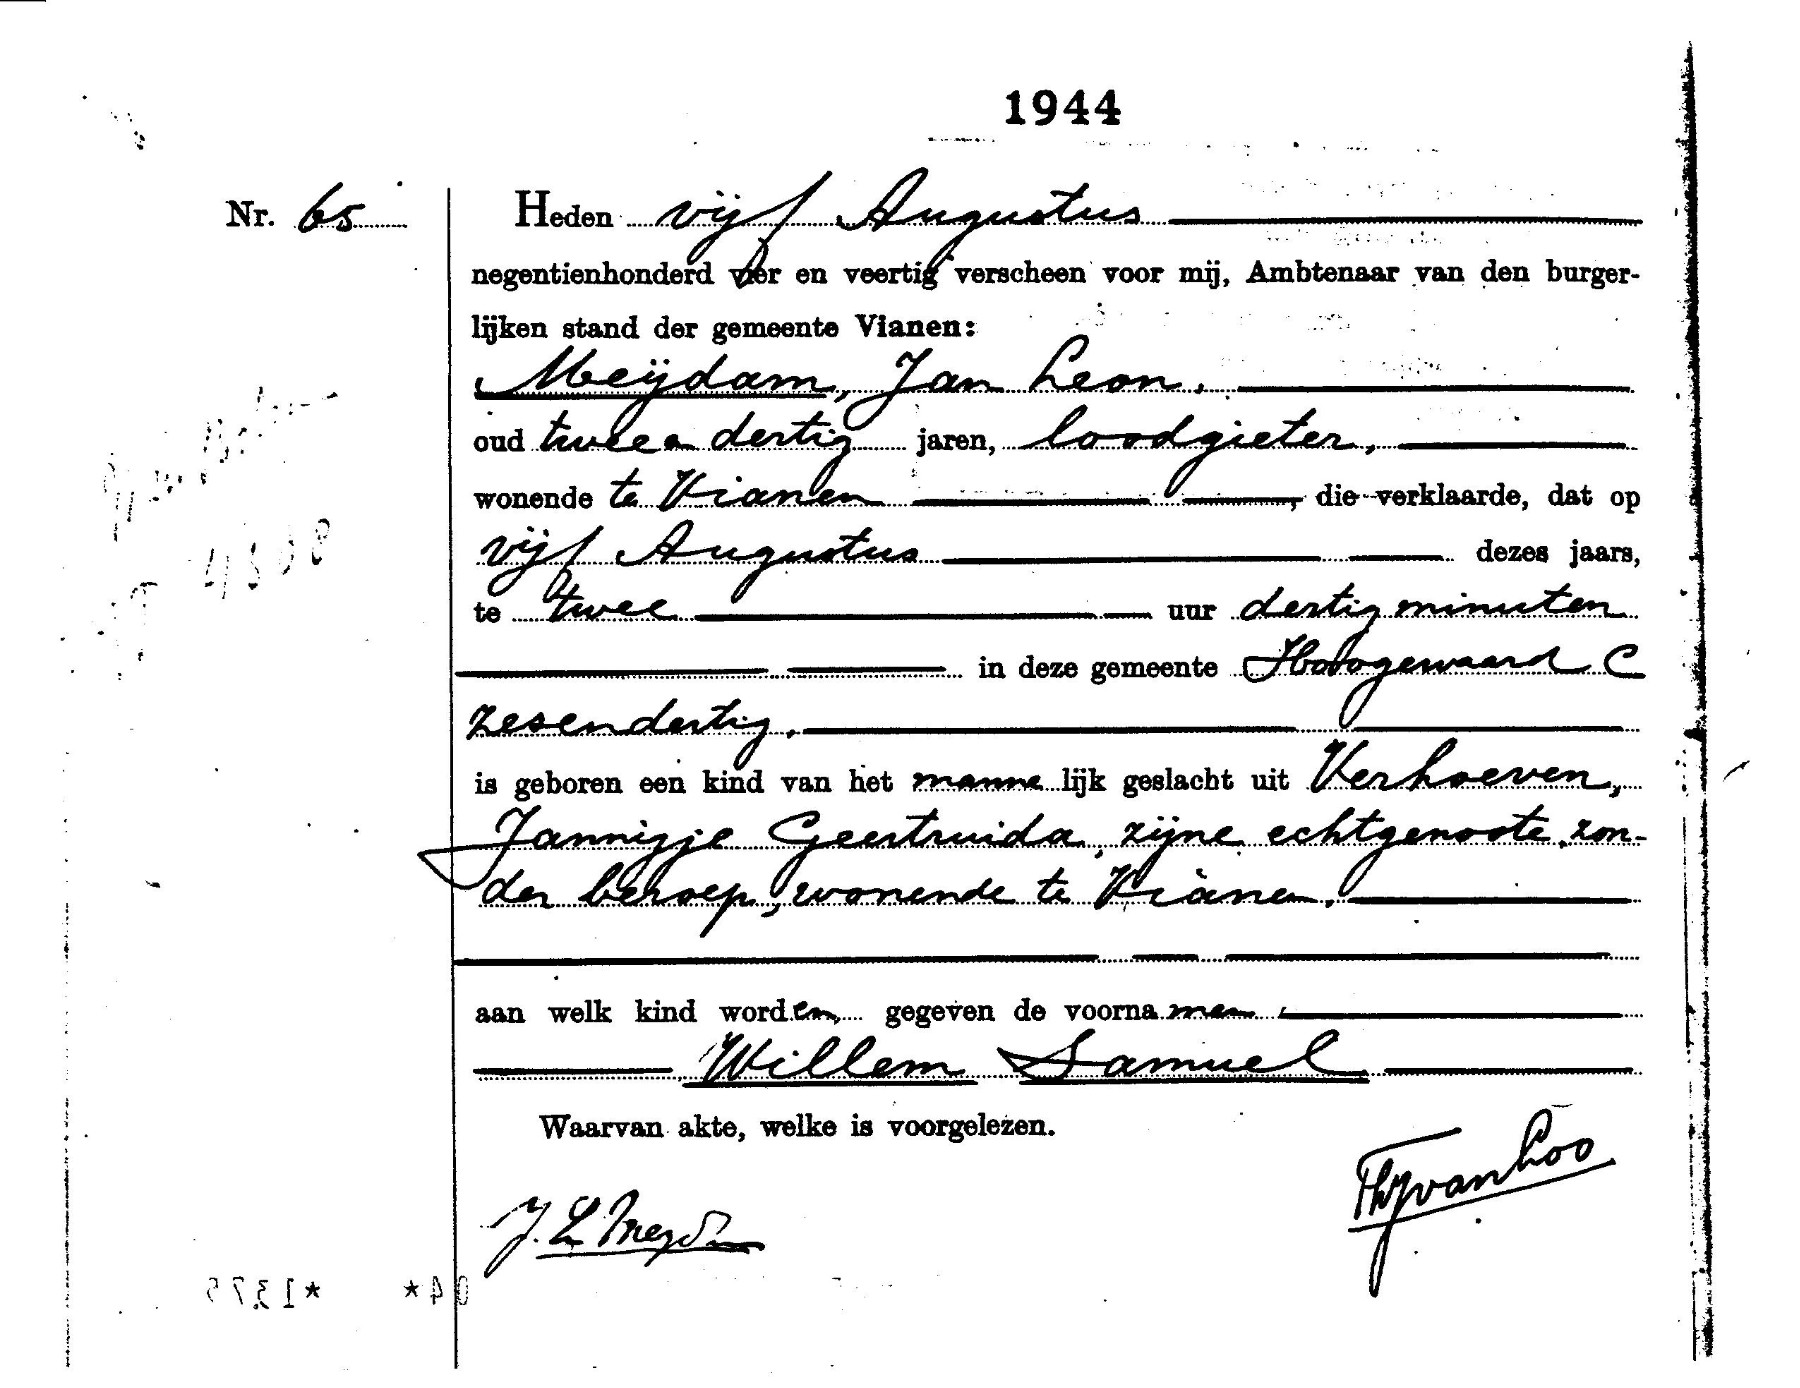 1944
Nr. 65
Heden vijf Augustus
negentienhonderd vier en veertig verscheen voor mij, Ambtenaar van den burger-
lijken stand der gemeente Vianen:
Meijdam, Jan Leon,
oud twee en dertig jaren, loodgieter,
wonende te Vianen, die verklaarde, dat op
vijf Augustus dezes jaars,
te twee uur dertig minuten
in deze gemeente Hoogewaard C
zesendertig.
is geboren een kind van het mannelijk geslacht uit Verhoeven,
Jannigje Geertruida, zijne echtgenoote, zon-
der beroep, wonende te Vianen.
aan welk kind worden gegeven de voornamen
Willem Samuel
Waarvan akte, welke is voorgelezen.
ThJvanLoo
J. L. Meijdam